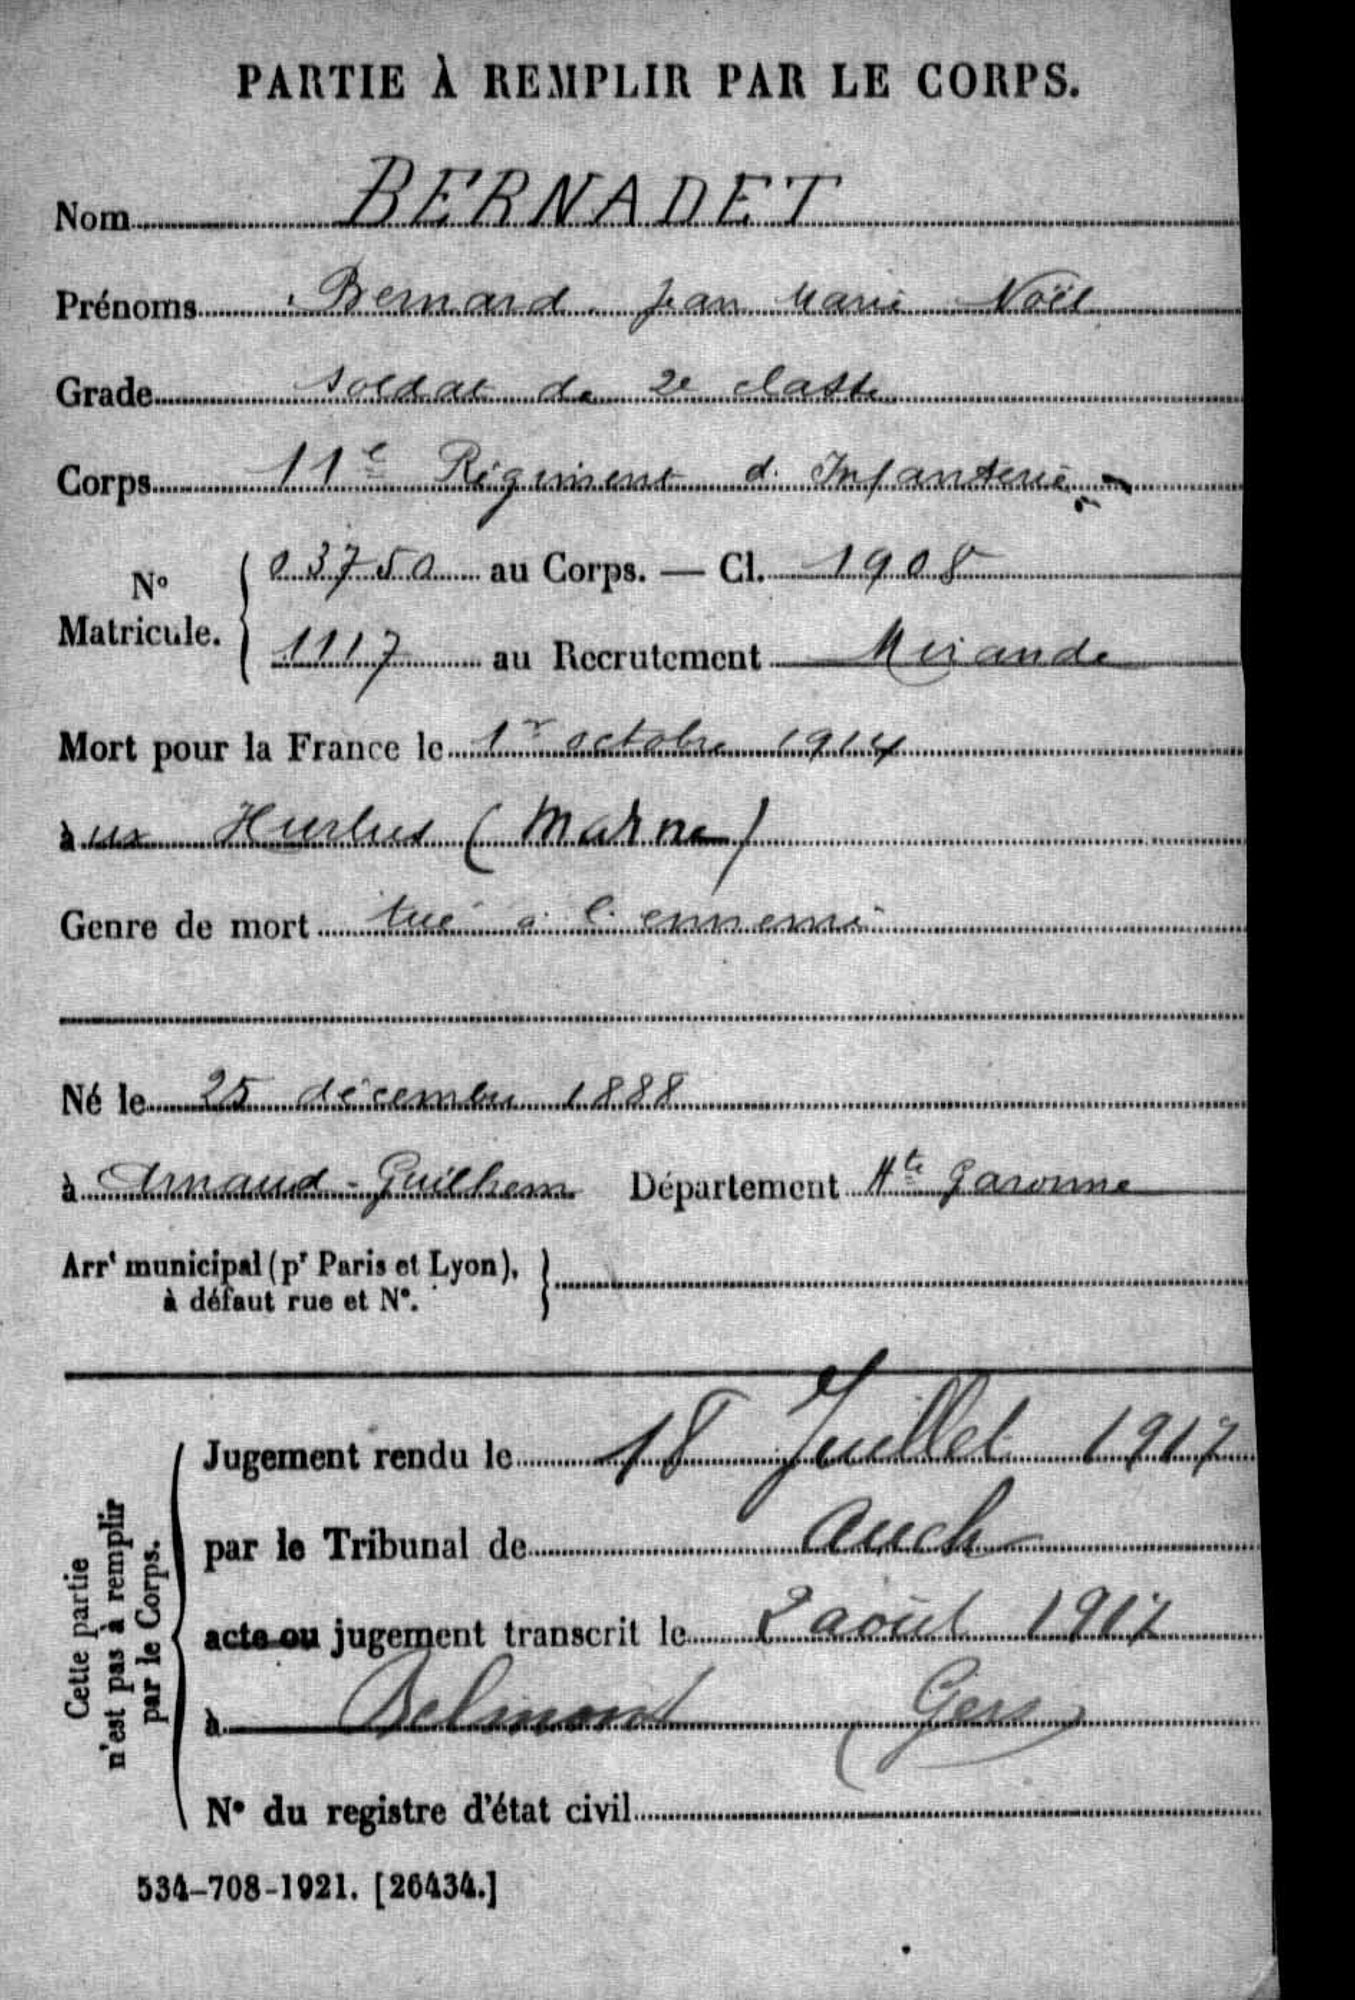 PARTIE À REMPLIR PAR LE CORPS.
Nom BERNADET
Prénoms Bernard Jean Marie Noël
Grade soldat de 2e classe
Corps 11e Régiment d'Infanterie
N° Matricule. 03750 au Corps. — Cl. 1908
1117 au Recrutement Mirande
Mort pour la France le 1r octobre 1914
aux Hurlus (Marne)
Genre de mort tué à l'ennemi
Né le 25 décembre 1888
à Arnaud-Guilhem Département Hte Garonne
Arrt municipal (pr Paris et Lyon), à défaut rue et N°.
Cette partie n'est pas à remplir par le Corps.
Jugement rendu le 18 Juillet 1917
par le Tribunal de Auch
acte ou jugement transcrit le 2 août 1917
à Belmont (Gers)
N° du registre d'état civil
534-708-1921. [26434.]